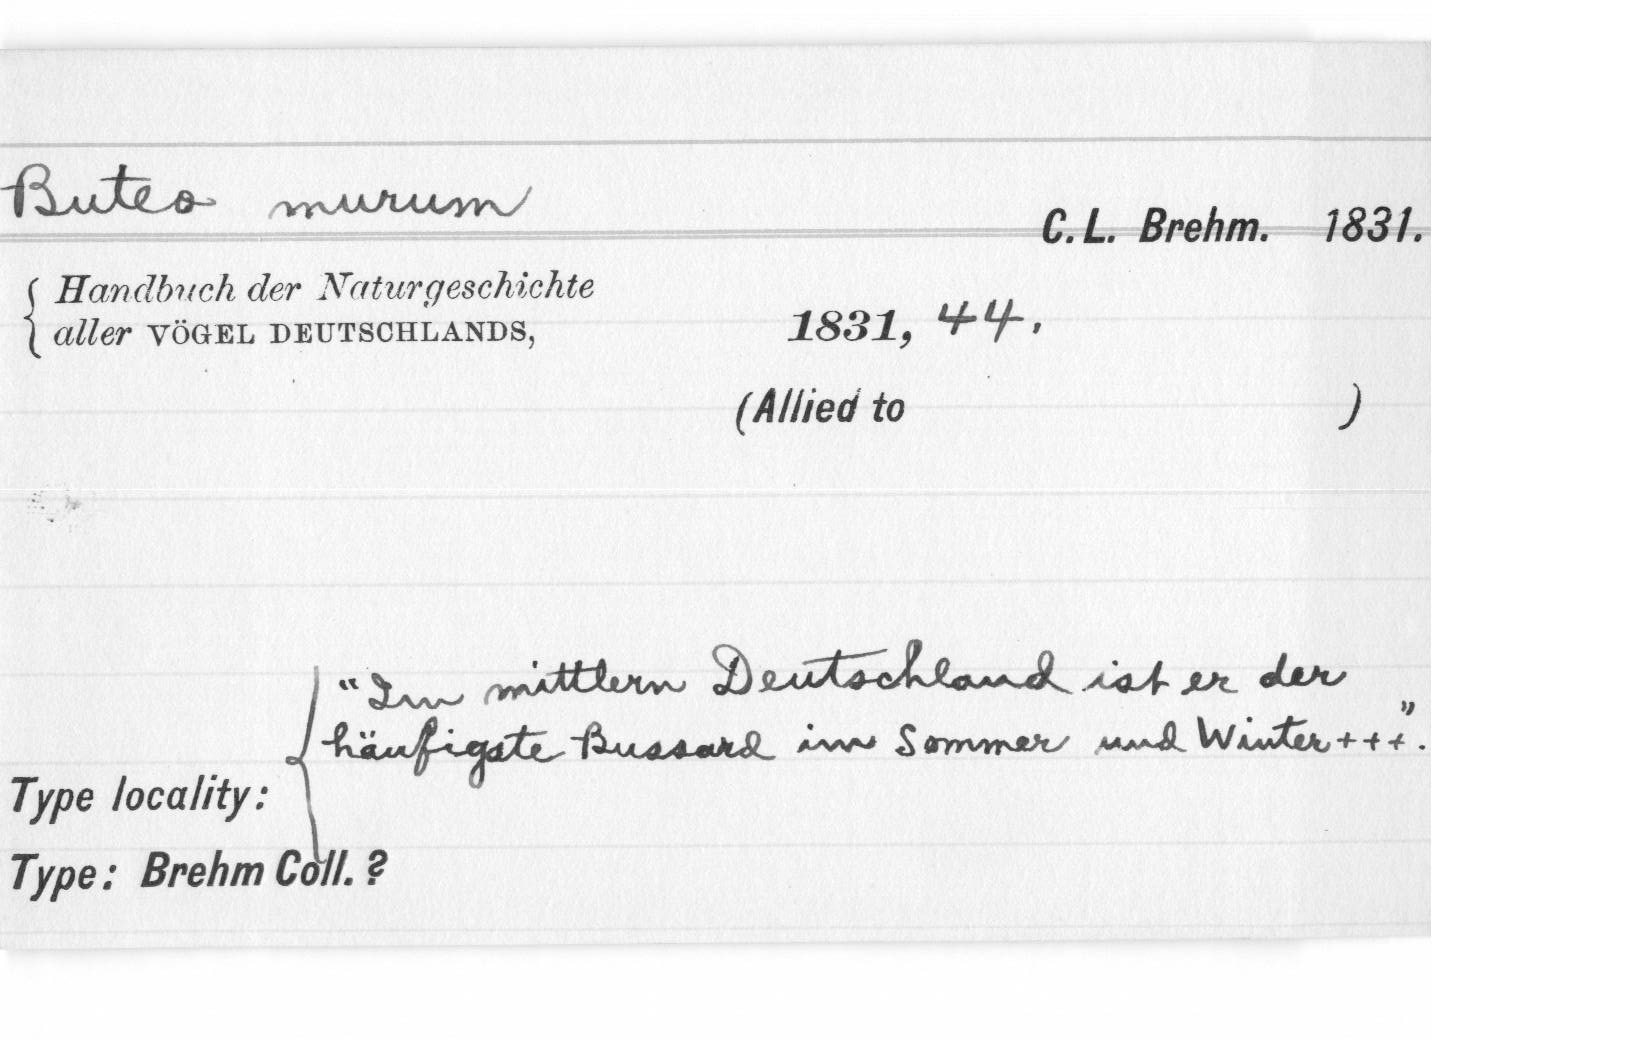 Buteo murum
C. L. Brehm. 1831.
Handbuch der Naturgeschichte
aller VÖGEL DEUTSCHLANDS,
1831, 44.
(Allied to )
"Im mittlern Deutschland ist er der
häufigste Bussard im Sommer und Winter+++".
Type locality:
Type: Brehm Coll. ?